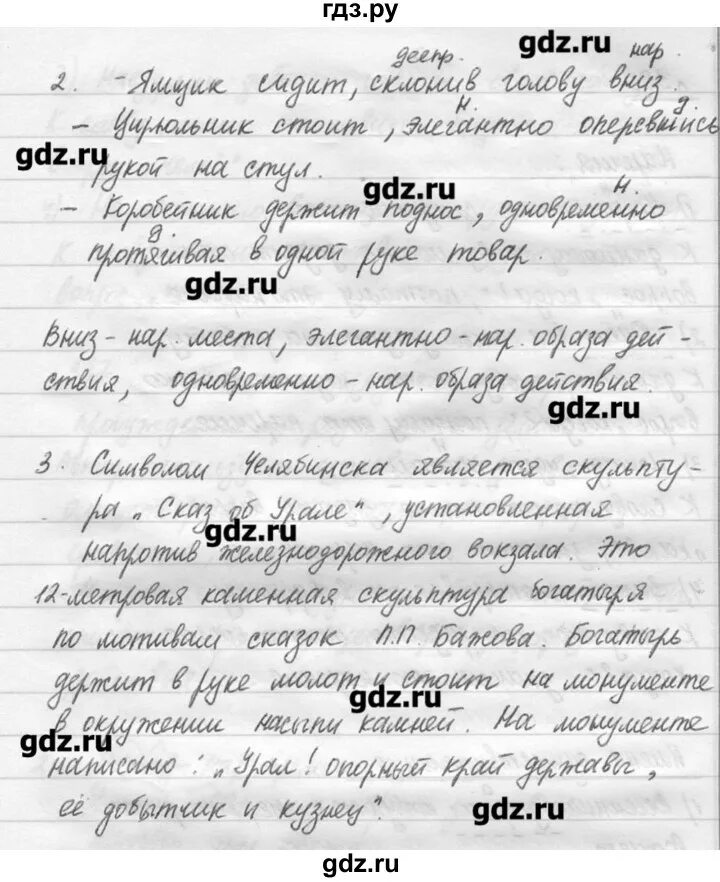 гдз.ру
деепр. нар.
2. - Ямщик сидит, склонив голову вниз.
н. д.
- Цирюльник стоит, элегантно оперевшись
рукой на стул.
н.
- Коробейник держит поднос, одновременно
д.
протягивая в одной руке товар.
Вниз - нар. места, элегантно - нар. образа дей-
ствия, одновременно - нар. образа действия.
3. Символом Челябинска является скульпту-
ра „Сказ об Урале", установленная
напротив железнодорожного вокзала. Это
12-метровая каменная скульптура богатыря
по мотивам сказок П.П. Бажова. Богатырь
держит в руке молот и стоит на монументе
в окружении насыпи камней. На монументе
написано: „Урал! опорный край державы,
её добытчик и кузнец".
gdz.ru
gdz.ru
gdz.ru
gdz.ru
gdz.ru
gdz.ru
gdz.ru
gdz.ru
gdz.ru
gdz.ru